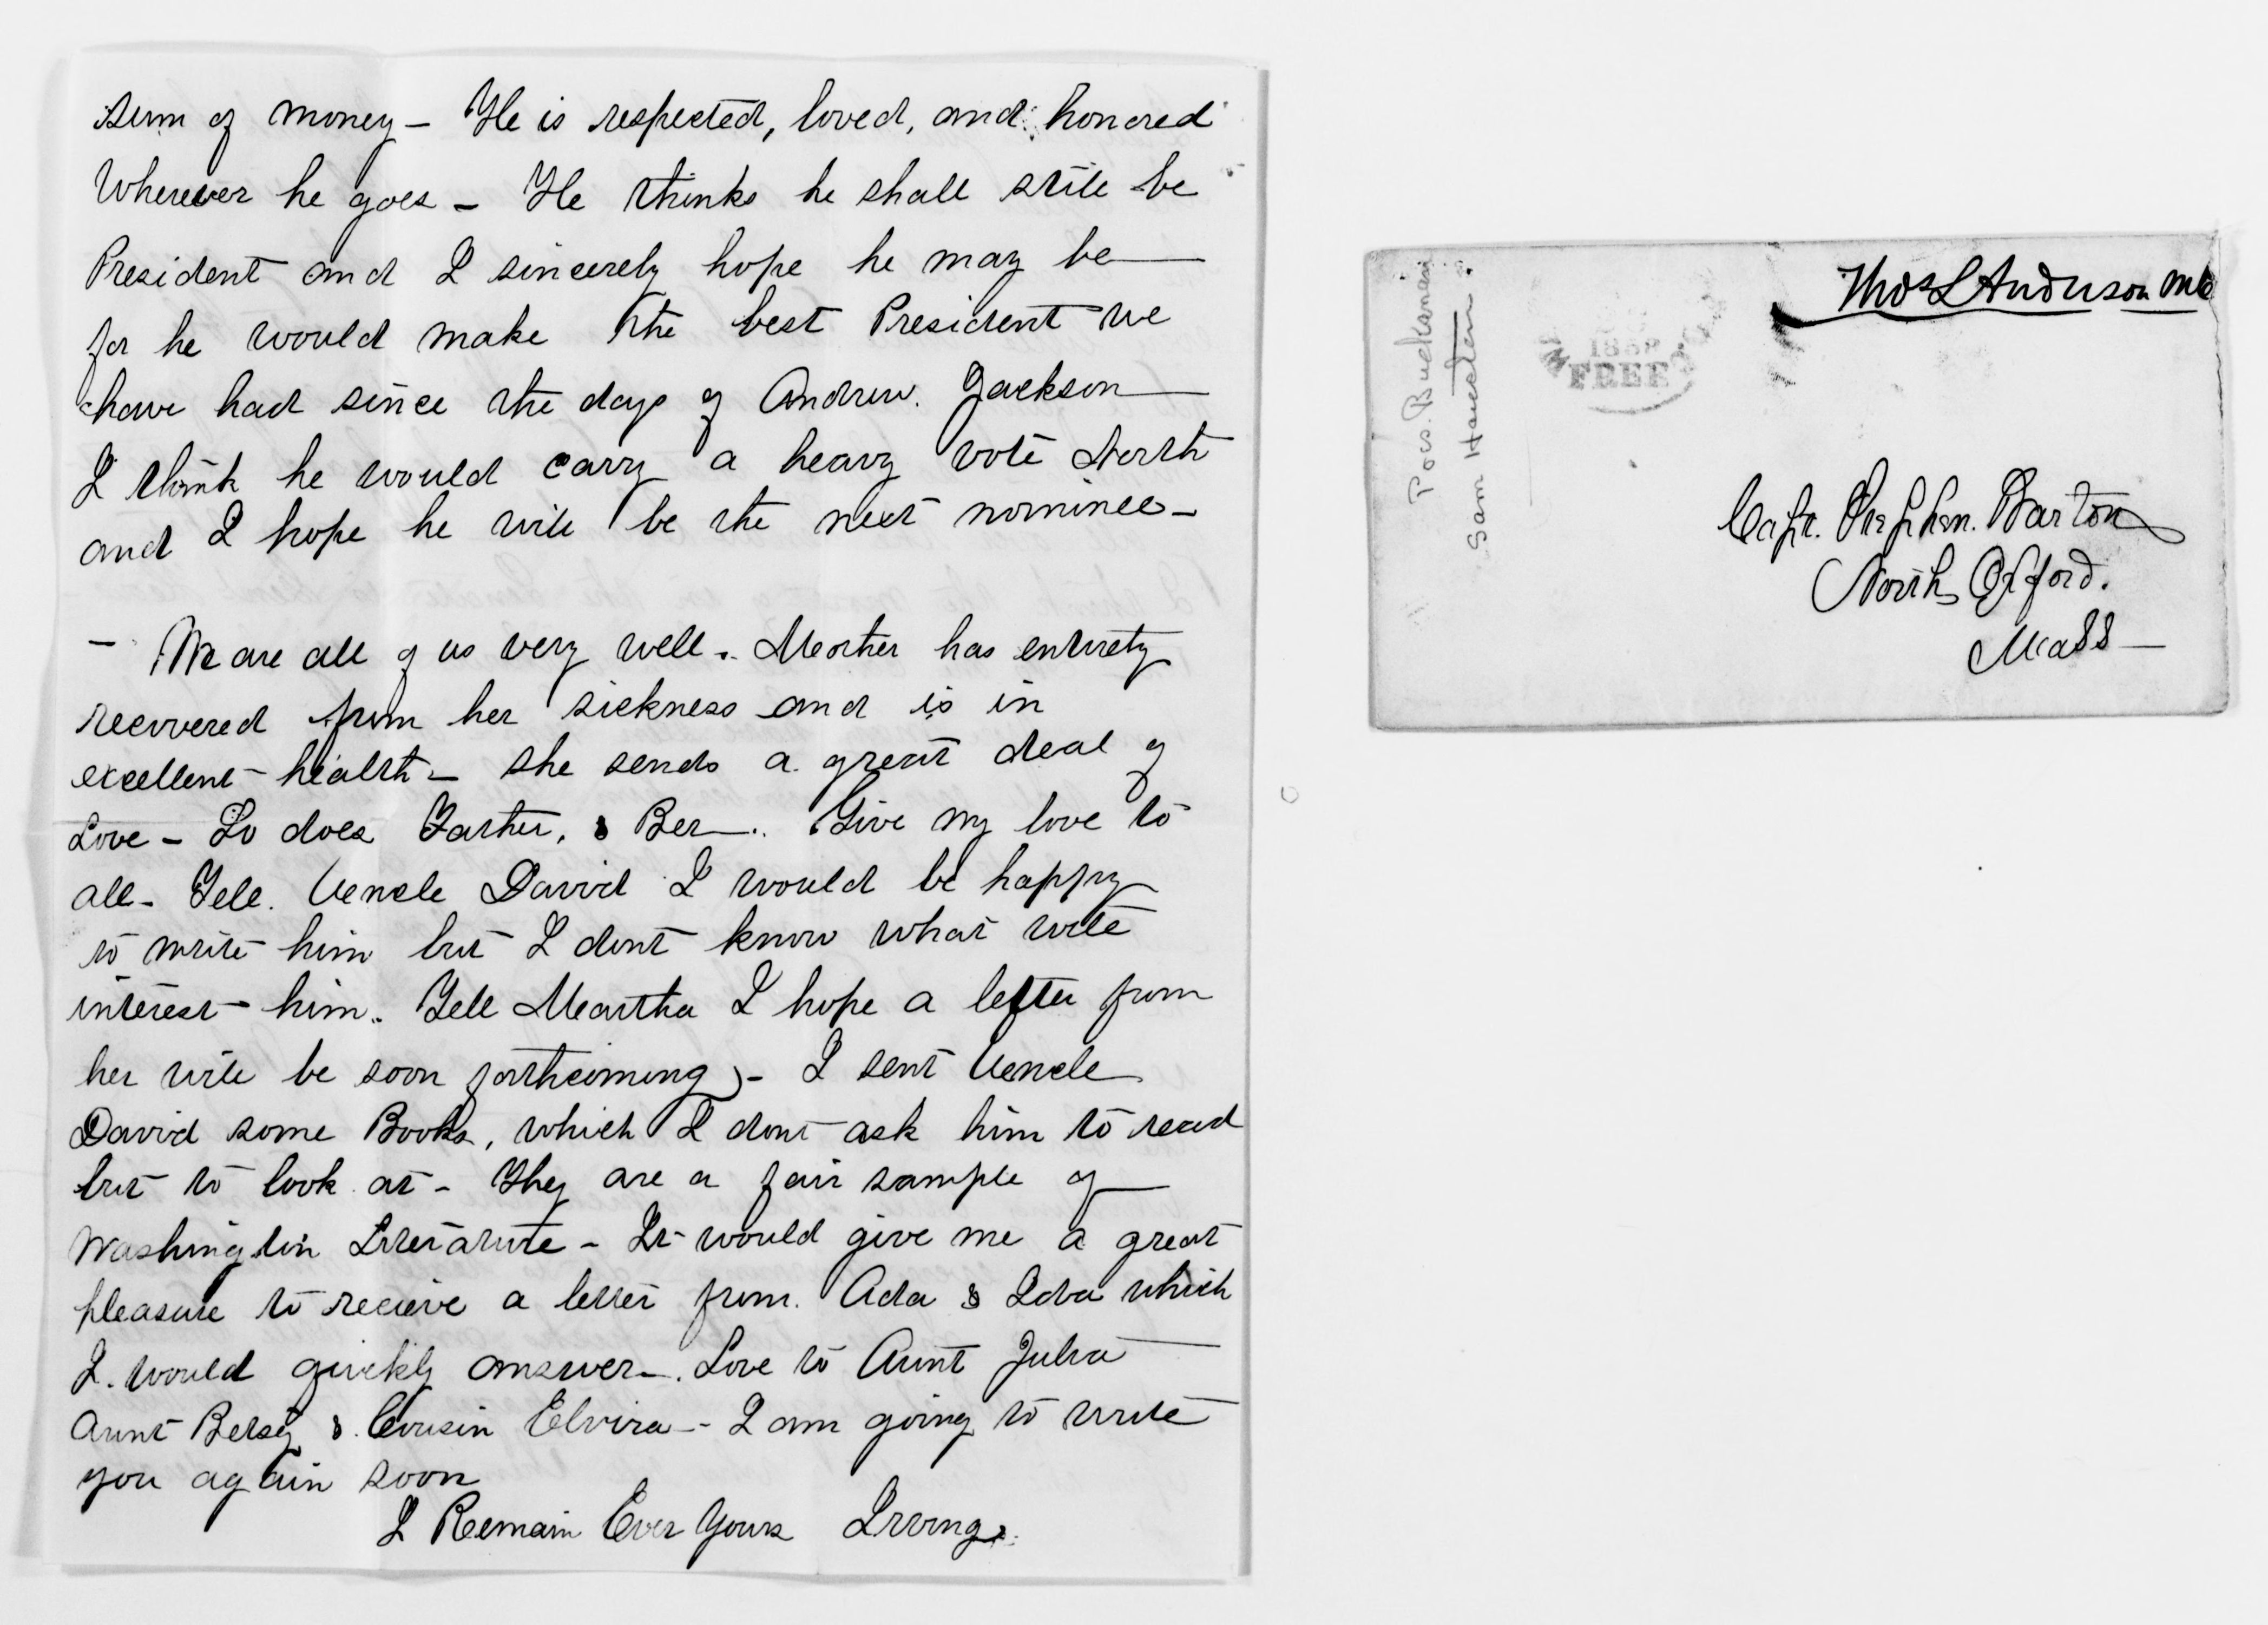 sum of money - He is respected, loved, and honored
Wherever he goes - He thinks he shall still be
President and I sincerely hope he may be
for he would make the best President we
have had since the days of Andrew. Jackson
I think he would carry a heavy vote North
and I hope he will be the next nominee -
- We are all of us very well. Mother has entirely
recovered from her sickness and is in
excellent health - She sends a great deal of
Love - So does Farther, & Ber -. Give my love to
all - Tell. Uencle David I would be happy
to write him but I dont know what will
interest him. Tell Meartha I hope a letter from
her will be soon forthcoming - I sent Uencle
David some Books, which I dont ask him to read
but to look at - They are a fair sample of
Washington Literature - It would give me a great
pleasure to recieve a letter from. Ada & Ida which
I. would quickly answer -. Love to Aunt Julia
Aunt Betsey &. Cousin Elvira - I am going to write
you again soon
I Remain Ever Yours Irving.
Thos L Anderson MC
1858
FREE
Pres. Buchanan
Sam Houston.
Capt. Stephen. Barton
North Oxford.
Mass -